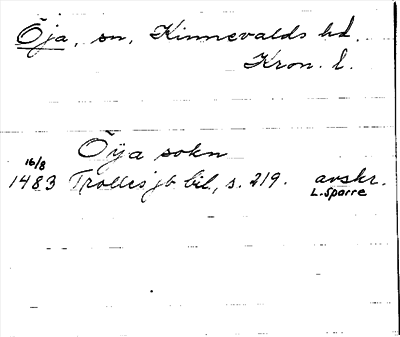 Öja, sn, Kinnevalds hd.
Kron. l.
Öya sokn
16/8
1483 Trolles jb bil, s. 219. avskr.
L. Sparre